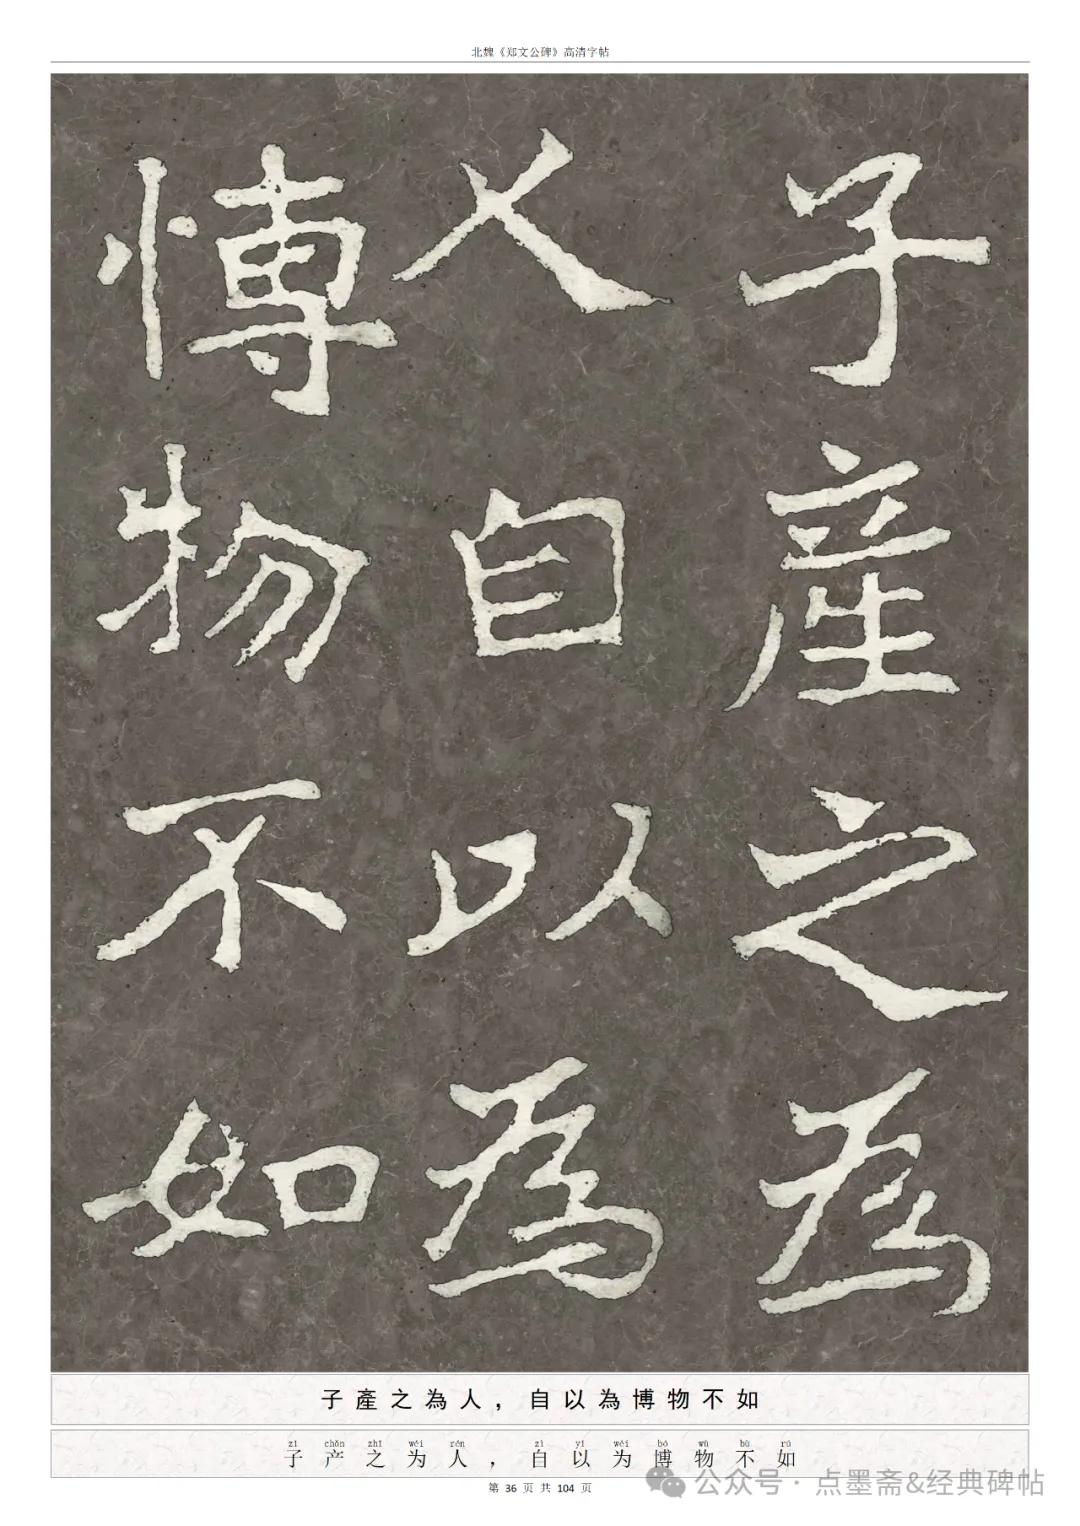 北魏《郑文公碑》高清字帖
子產之為
人自以為
博物不如
子產之為人，自以為博物不如
zǐ chǎn zhī wéi rén zì yǐ wéi bó wù bù rú
子产之为人，自以为博物不如
第 36 页 共 104 页
公众号 · 点墨斋&经典碑帖